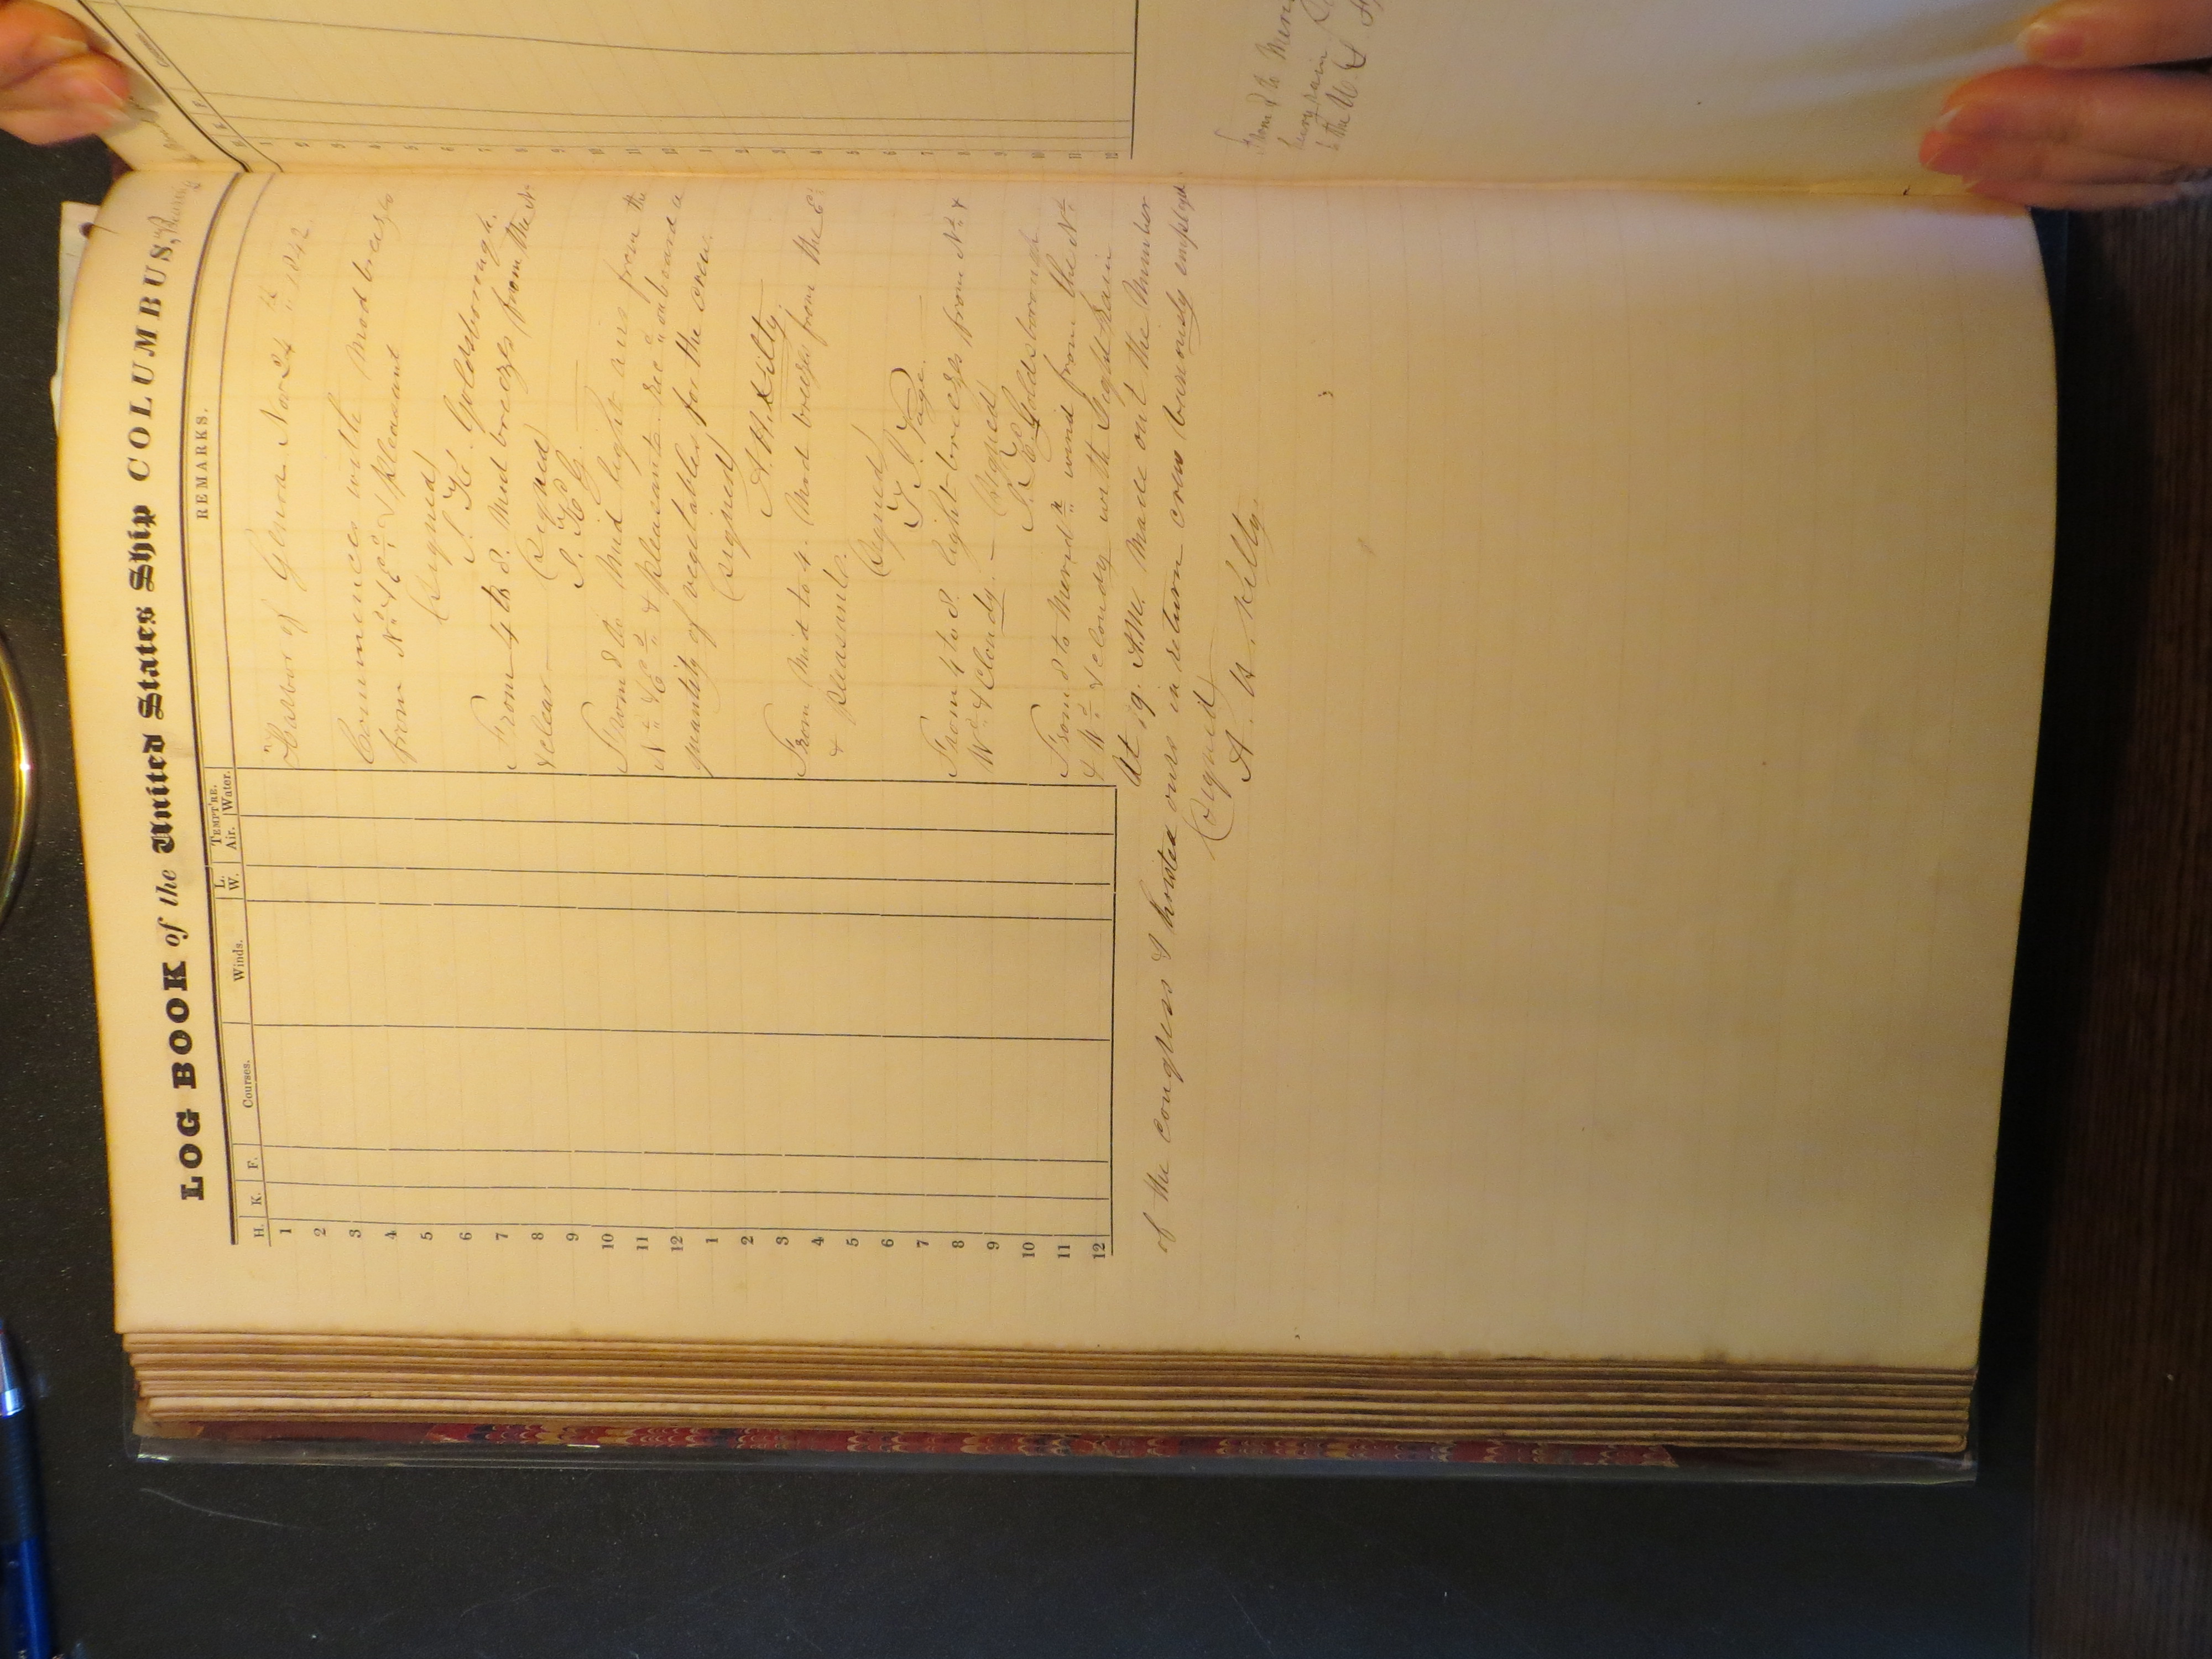 LOG BOOK of the United States Ship COLUMBUS,
REMARKS.
H. K. F. Courses. Winds. L. W. TEMPT'RE. Air. Water.
1
2
3
4
5
6
7
8
9
10
11
12
1
2
3
4
5
6
7
8
9
10
11
12
"Harbor of Genoa Nov 24th 1842.
Commences with Mod breezes
from Nd & Ed & pleasant
(Signed)
J. R. Goldsborough.
From 4 to 8. Mod breezes from the Nd
& clear —
(Signed)
J. R. G.
From 8 to Mid light airs from the
Nd & Ed & pleasant. recd on board a
quantity of vegetables for the crew.
(Signed)
A. H. Kilty.
From Mid to 4. Mod breezes from the Ed
& pleasant.
(Signed)
T. J. Page.
From 4 to 8. light breezes from Nd &
Wd & Cloudy. —
(Signed)
J. R. Goldsborough
From 8 to Merid wind from the Nd
& Wd & cloudy with light Rain
At 9. A.M. Made out the Number
of the congress & hoisted ours in return crew variously employd.
(Signed)
A. H. Kilty.
From 8 to Merid
heavy rain
to the